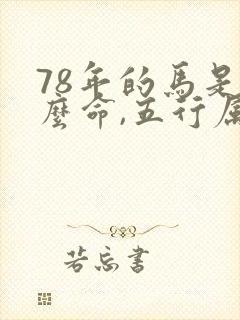 78年的馬是
麼命,五行属
若忘書